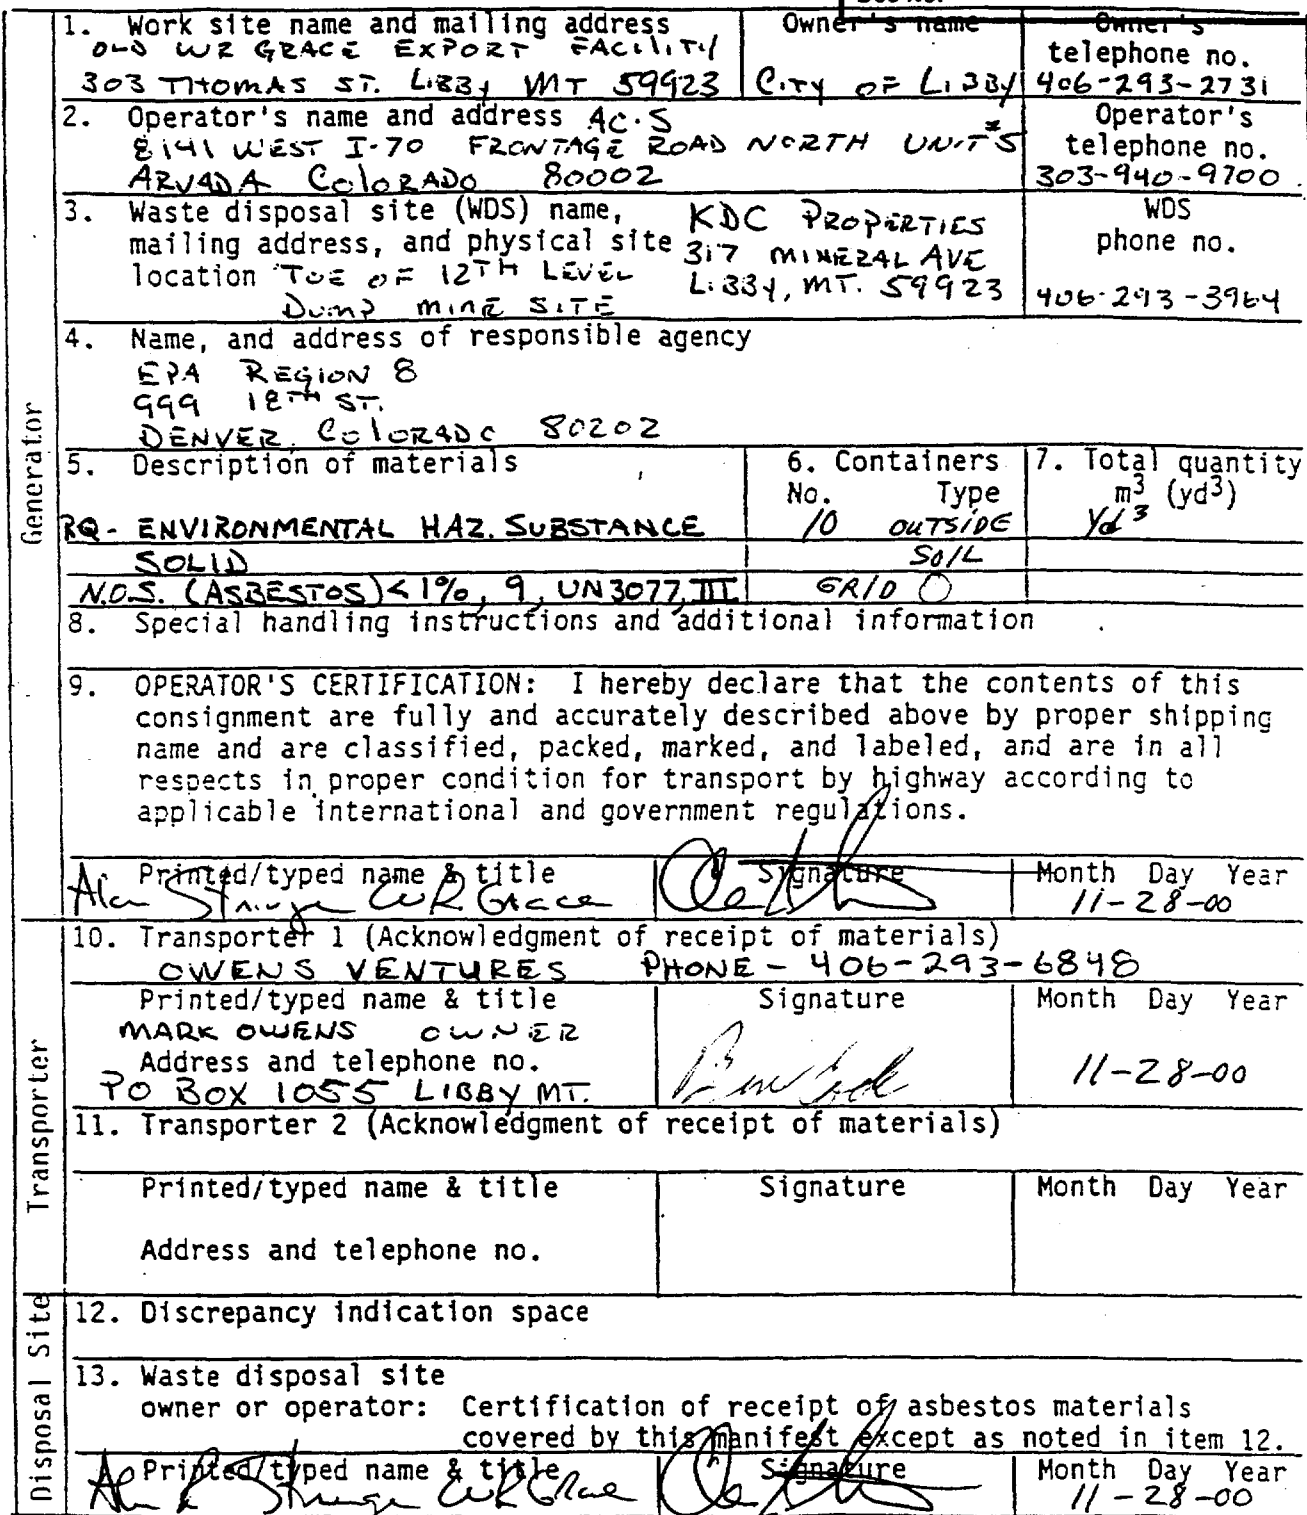 1. Work site name and mailing address
OLD WR GRACE EXPORT FACILITY
303 THOMAS ST. LIBBY MT 59923
Owner's name
CITY OF LIBBY
Owner's
telephone no.
406-293-2731
2. Operator's name and address AC.S
8141 WEST I-70 FRONTAGE ROAD NORTH UNIT #5
ARVADA COLORADO 80002
Operator's
telephone no.
303-940-9700
3. Waste disposal site (WDS) name,
mailing address, and physical site
location TOE OF 12TH LEVEL
DUMP MINE SITE
KDC PROPERTIES
317 MINERAL AVE
LIBBY, MT. 59923
WDS
phone no.
406-293-3964
4. Name, and address of responsible agency
EPA REGION 8
999 18TH ST.
DENVER, COLORADO 80202
Generator
5. Description of materials
6. Containers
No. Type
7. Total quantity
m3 (yd3)
RQ- ENVIRONMENTAL HAZ. SUBSTANCE
10 OUTSIDE
Yd3
SOLID
SOIL
N.O.S. (ASBESTOS) <1%, 9, UN3077, III
GRID O
8. Special handling instructions and additional information
9. OPERATOR'S CERTIFICATION: I hereby declare that the contents of this
consignment are fully and accurately described above by proper shipping
name and are classified, packed, marked, and labeled, and are in all
respects in proper condition for transport by highway according to
applicable international and government regulations.
Printed/typed name & title
Alan Stringer WR Grace
Signature
Month Day Year
11-28-00
Transporter
10. Transporter 1 (Acknowledgment of receipt of materials)
OWENS VENTURES PHONE - 406-293-6848
Printed/typed name & title
MARK OWENS OWNER
Address and telephone no.
PO BOX 1055 LIBBY MT.
Signature
Month Day Year
11-28-00
11. Transporter 2 (Acknowledgment of receipt of materials)
Printed/typed name & title
Signature
Month Day Year
Address and telephone no.
Disposal Site
12. Discrepancy indication space
13. Waste disposal site
owner or operator: Certification of receipt of asbestos materials
covered by this manifest except as noted in item 12.
Printed/typed name & title
Alan R Stringer WR Grace
Signature
Month Day Year
11-28-00